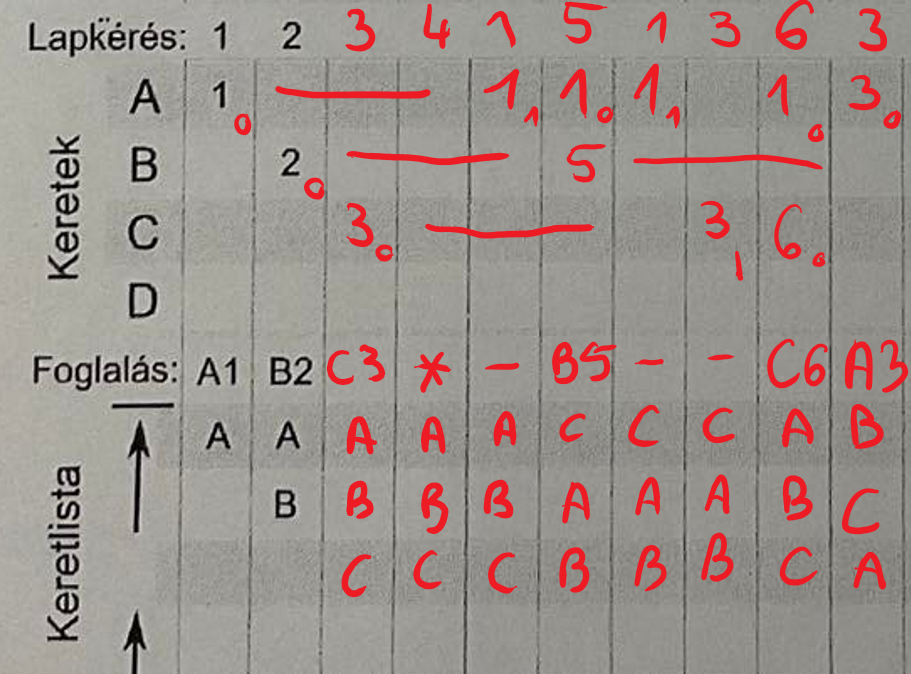 Lapkérés: 1 2 3 4 1 5 1 3 6 3
Keretek
A 1 0 1 1 1 0 1 1 1 0 3 0
B 2 0 5
C 3 0 3 1 6 0
D
Foglalás: A1 B2 C3 * - B5 - - C6 A3
Keretlista
A A A A A C C C A B
B B B B A A A B C
C C C B B B C A